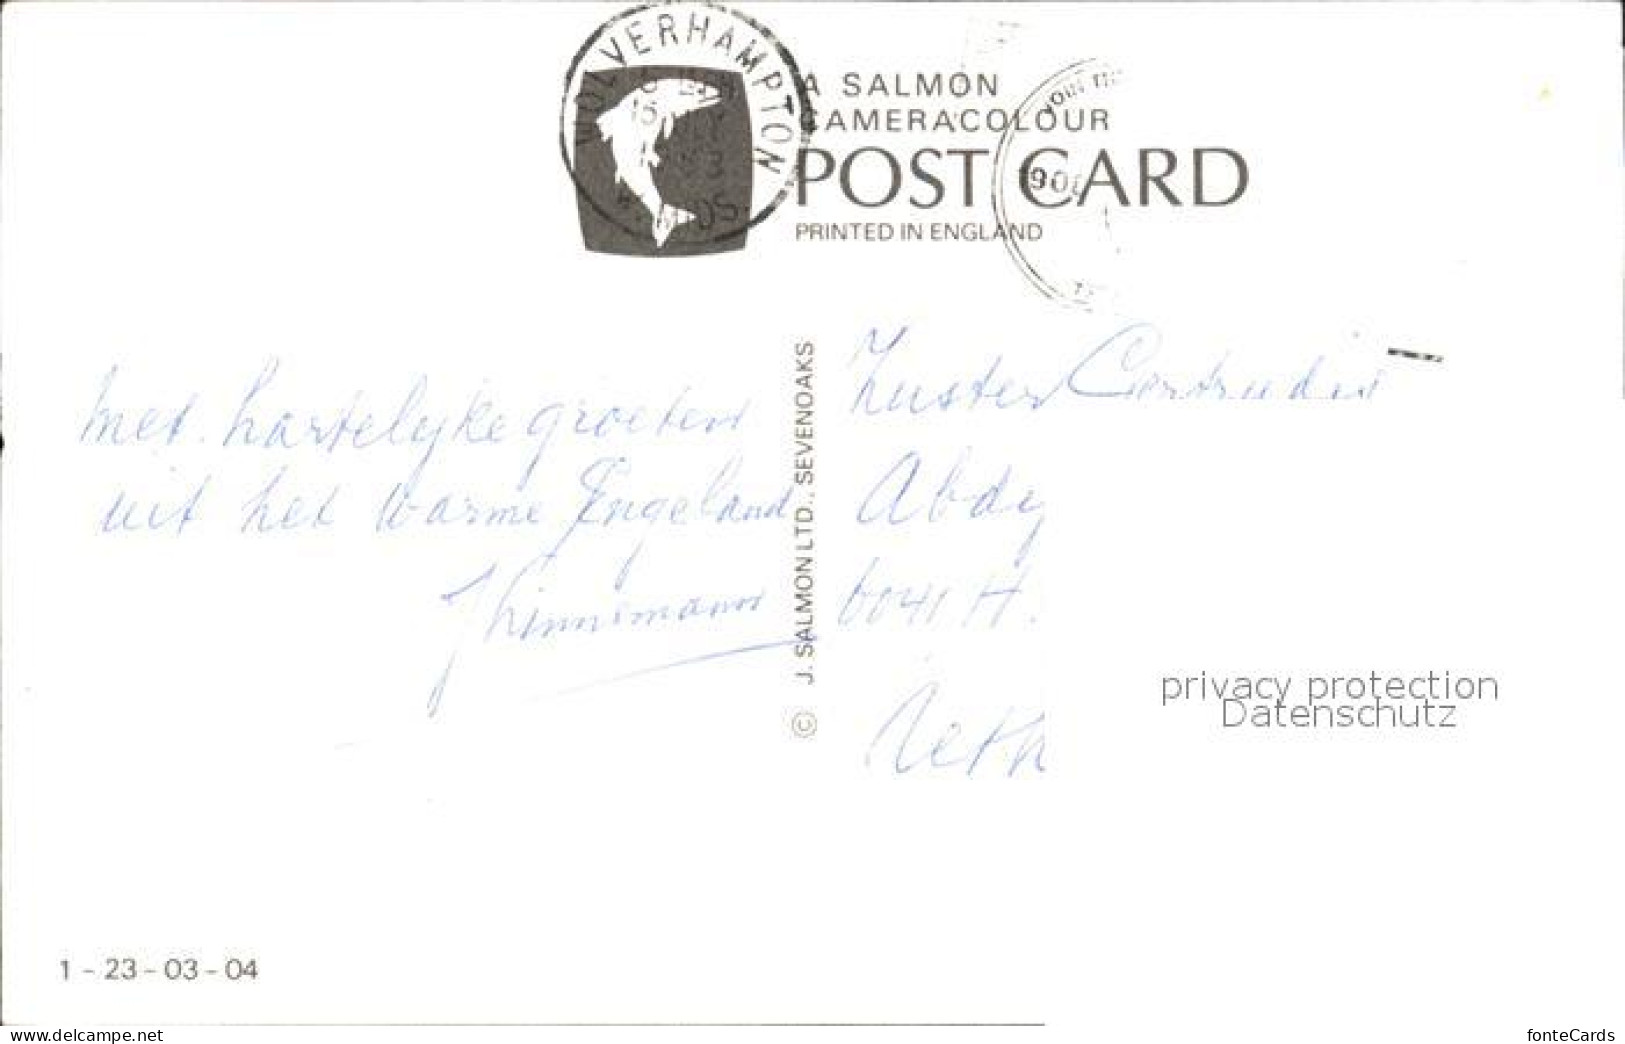 WOLVERHAMPTON
A SALMON
CAMERACOLOUR
POST CARD
PRINTED IN ENGLAND
Met hartelyke groeten
uit het warme Engeland
© J. SALMON LTD., SEVENOAKS
Zuster Gertrudis
Abdy
6041 H.
Neth
privacy protection
Datenschutz
1 - 23 - 03 - 04
www.delcampe.net
fonteCards